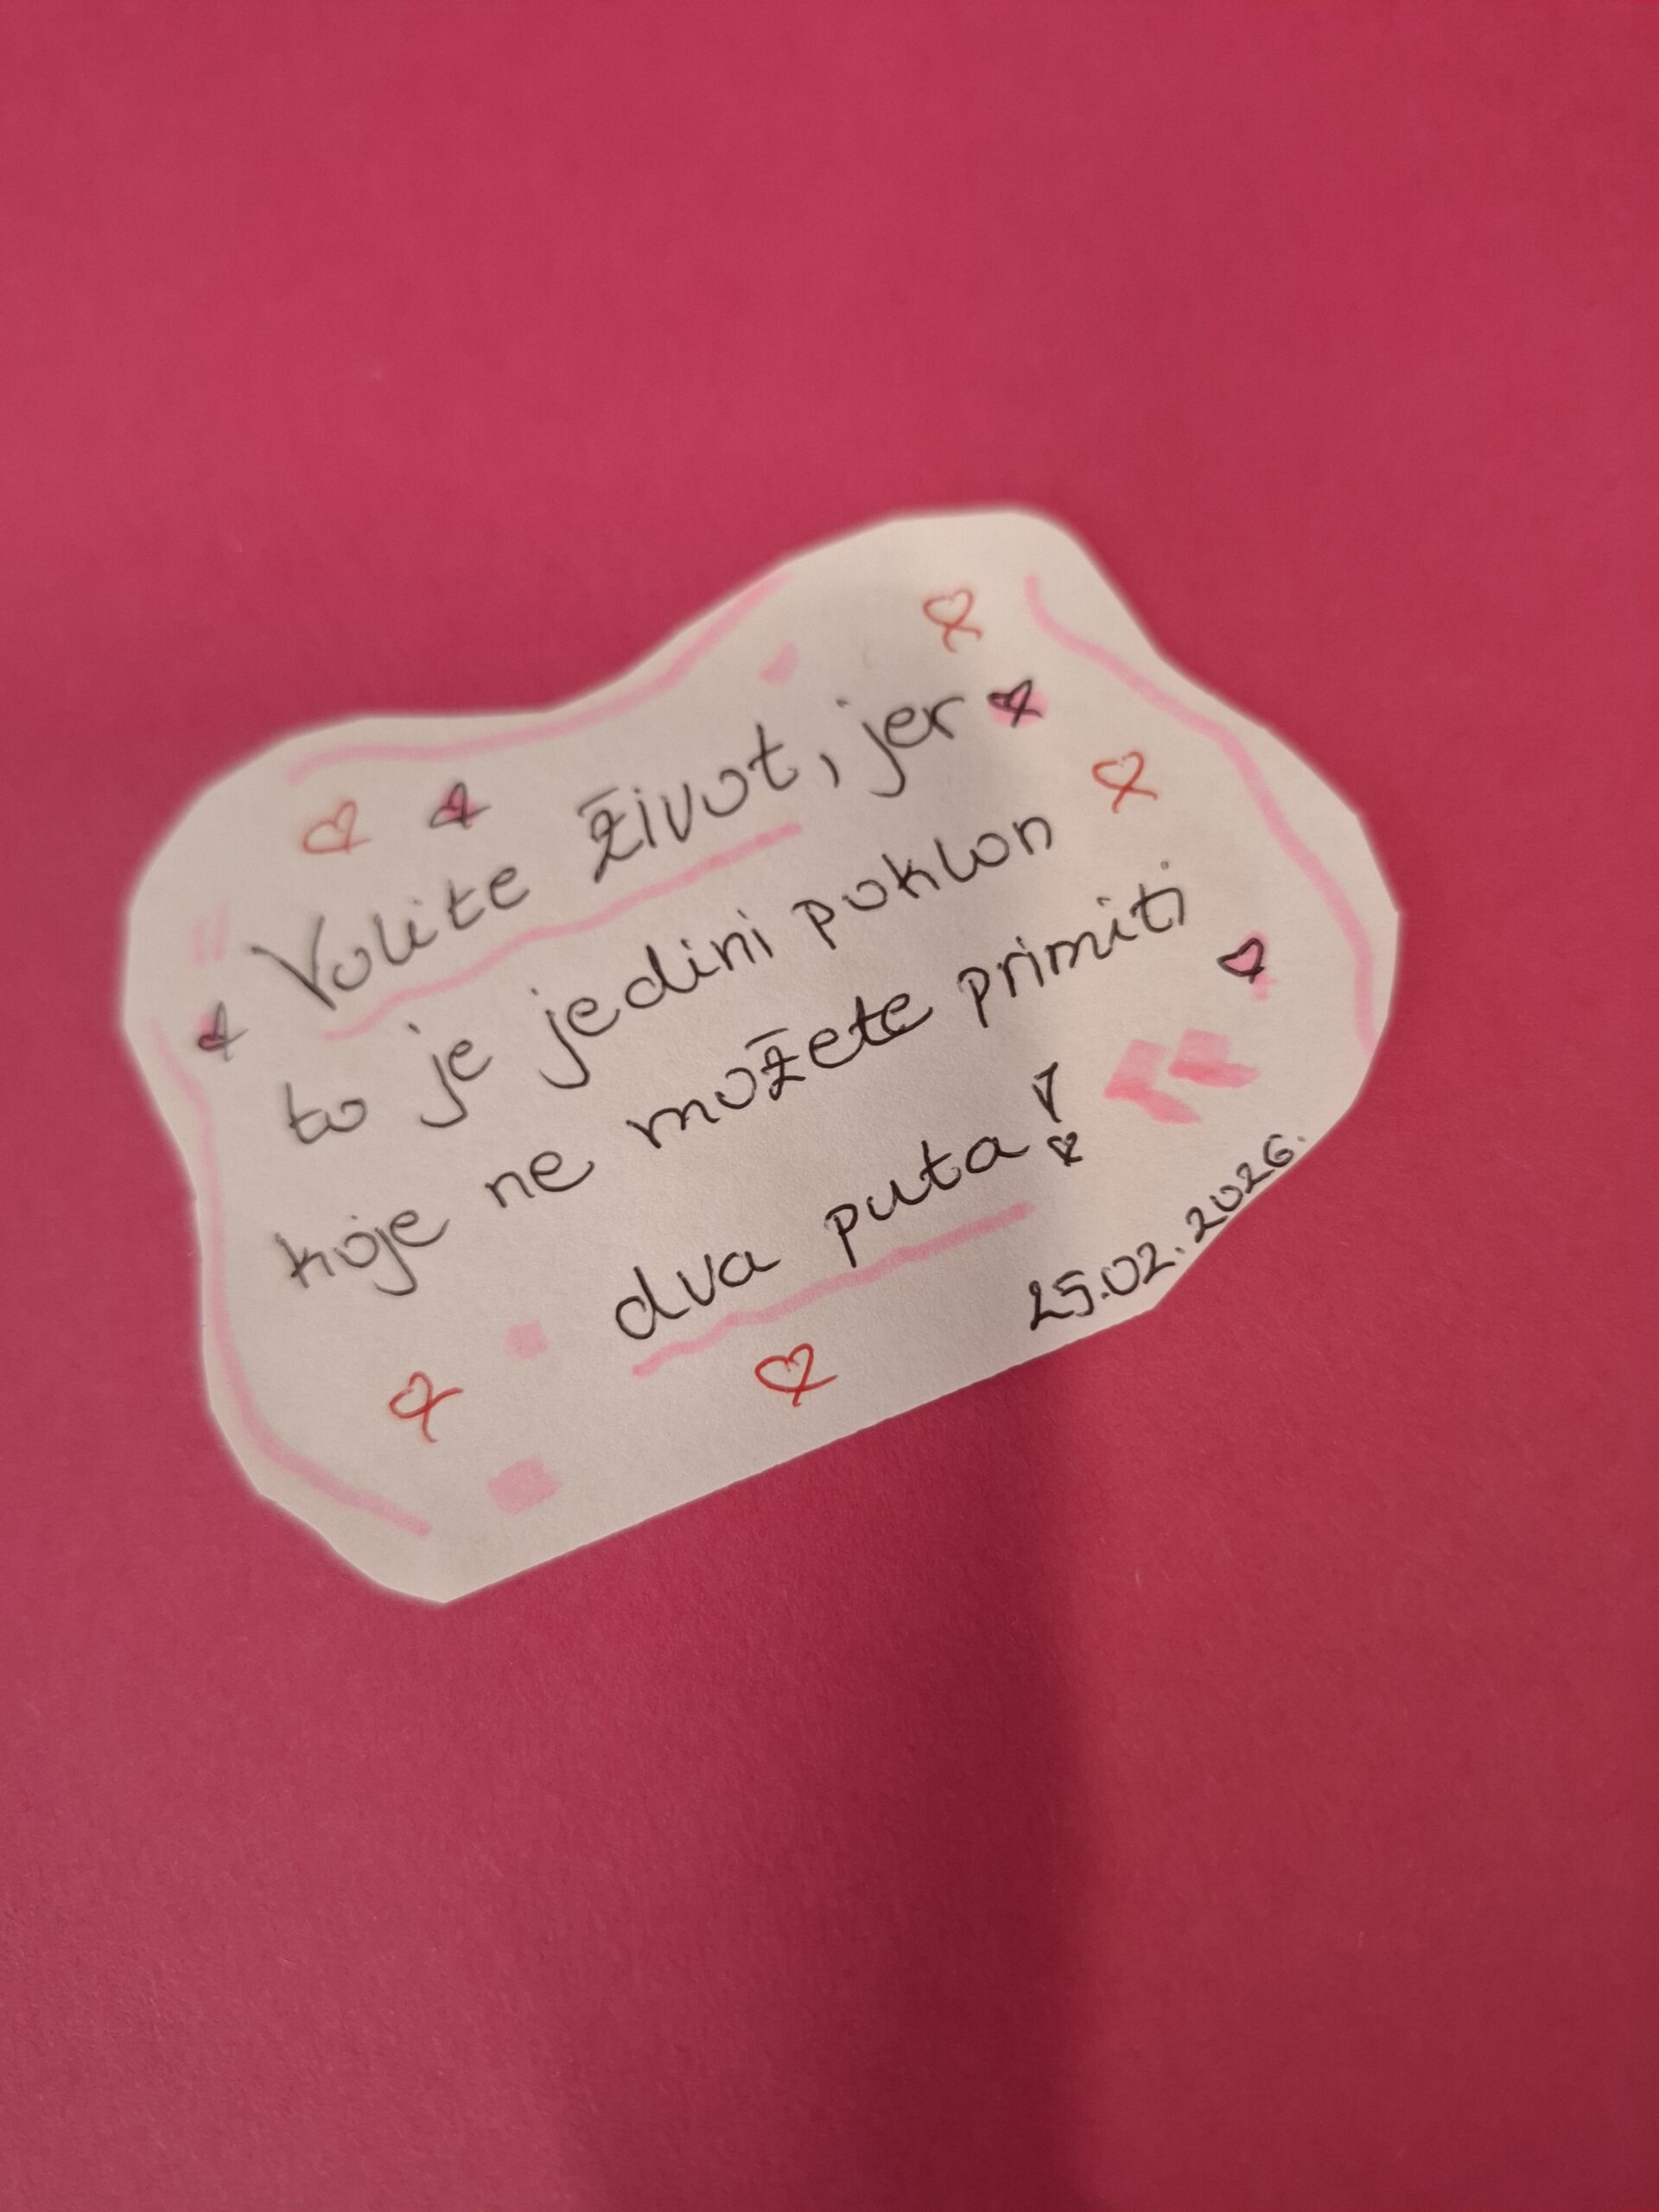 Volite život, jer
to je jedini poklon
koje ne možete primiti
dva puta!
25.02.2026.